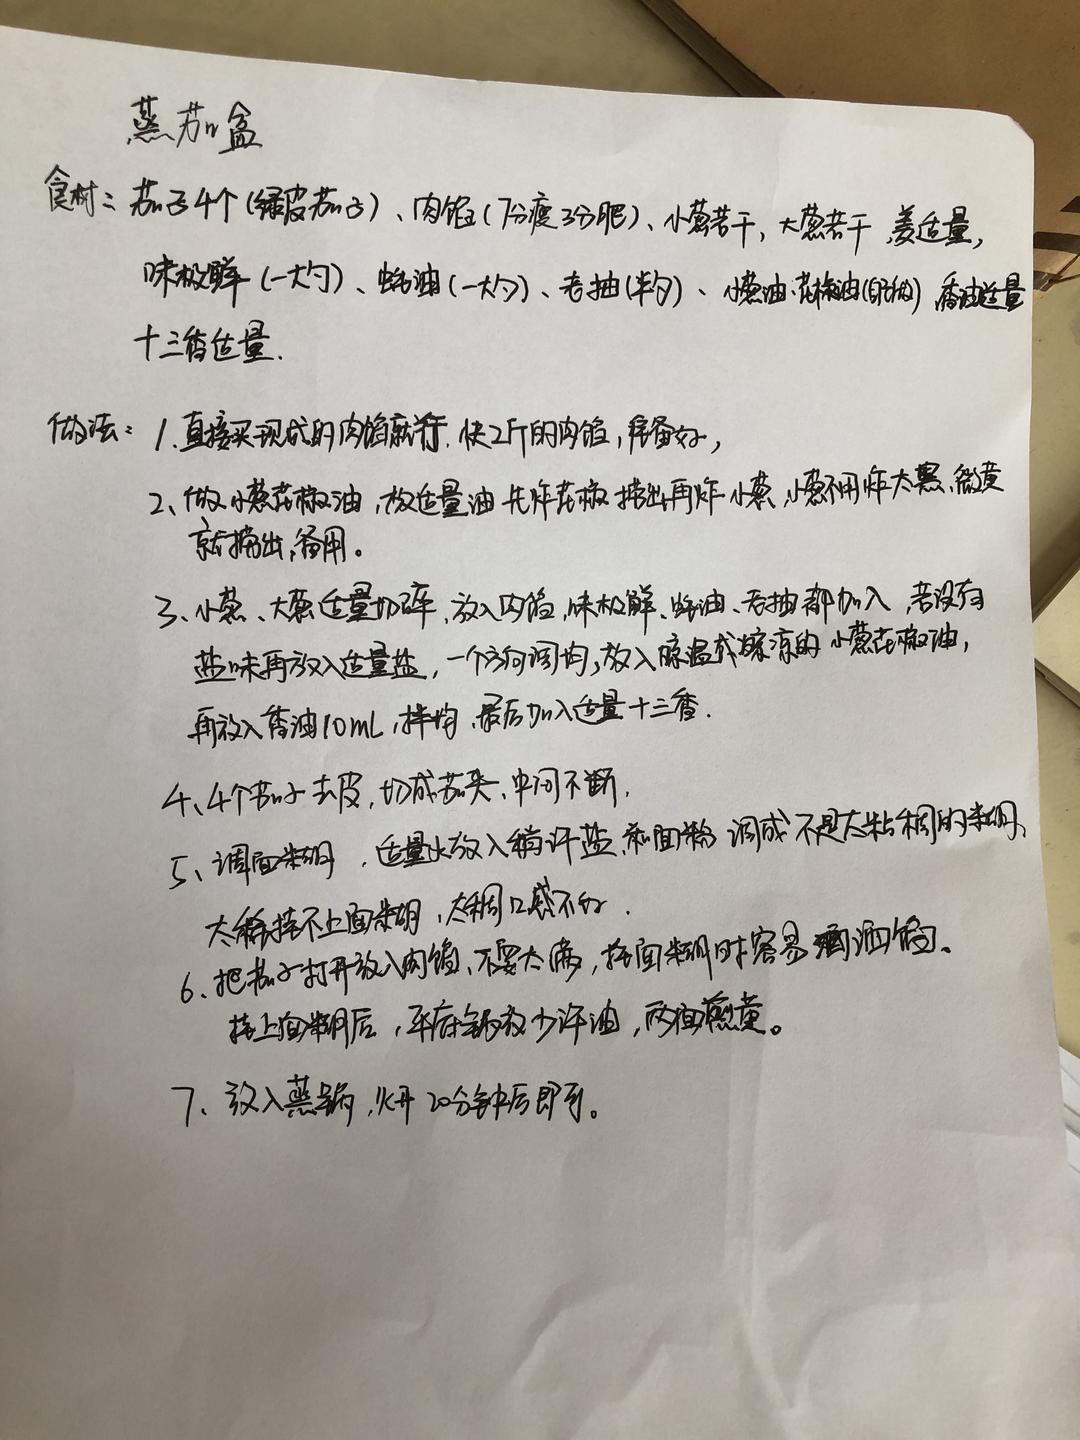 蒸茄盒
食材：茄子4个(绿皮茄子)、肉馅(7分瘦3分肥)、小葱若干，大葱若干 姜适量，
味极鲜(一大勺)、蚝油(一大勺)、老抽(半勺)、小葱油.花椒油(自制) 香油适量
十三香适量.
做法：1.直接买现成的肉馅就行.快2斤的肉馅,备好,
2、做小葱花椒油,放适量油 先炸花椒捞出再炸小葱,小葱不用炸太黑,微黄
就捞出,备用。
3、小葱、大葱适量切碎,放入肉馅,味极鲜、蚝油、老抽都加入,若没有
盐味再放入适量盐,一个方向调均,放入晾温或晾凉的小葱花椒油,
再放入香油10mL,拌均,最后加入适量十三香.
4、4个茄子去皮,切成茄夹、中间不断.
5、调面糊,适量水放入稍许盐,和面粉调成不是太粘稠的米糊、
太稀挂不上面糊,太稠口感不好.
6、把茄子打开放入肉馅、不要太满,挂面糊时容易洒馅。
挂上面糊后,平底锅放少许油,两面煎黄。
7、放入蒸锅,火开20分钟后即可。